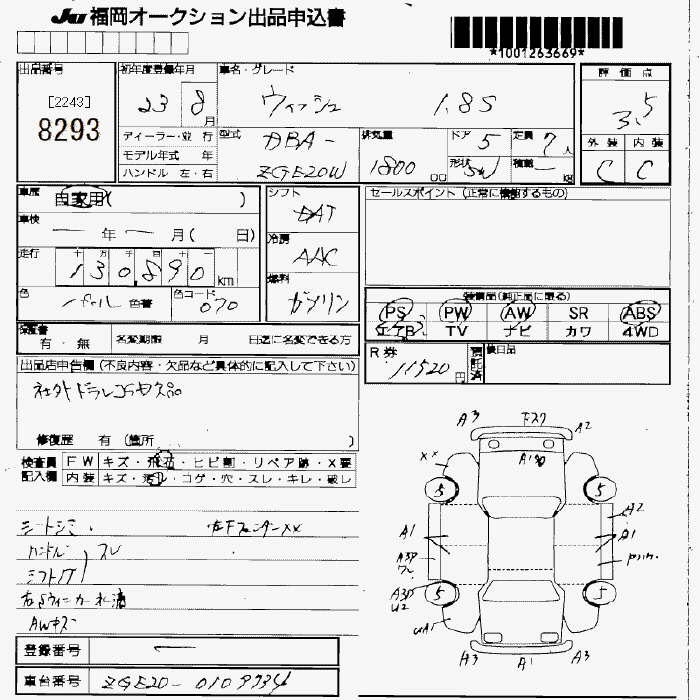 JU 福岡オークション出品申込書
*1001263669*
出品番号
[2243]
8293
初年度登録年月
23 8月
車名・グレード
ウィッシュ 1.8S
評価点
3.5
外装 内装
C C
ディーラー・並行
モデル年式 年
ハンドル 左・右
型式
DBA-
ZGE20W
排気量
1800 cc
ドア 5
形状 SW
定員 7人
積載 — kg
車歴
自家用( )
車検
— 年 — 月( 日)
走行
十 万 千 百 十 一
130,890 km
色
パール 色替
色コード 070
シフト
DAT
冷房
AAC
燃料
ガソリン
セールスポイント(正常に機能するもの)
装備品(純正品に限る)
PS PW AW SR ABS
エアB TV ナビ カワ 4WD
保証書
有・無
名変期限 月 日迄に名変できる方
R券 11520円
預託済
後日品
出品店申告欄(不良内容・欠品など具体的に記入して下さい)
社外ドラレコ
修復歴 有(箇所 )
検査員記入欄
FW キズ・飛石・ヒビ割・リペア跡・X要
内装 キズ・汚れ・コゲ・穴・スレ・キレ・破レ
シートシミ、 左Fフェンダーxx
ハンドル
シフトノブ スレ
AWキズ
A3 下スク A2
xx
5 5
A1 A2
A1
A3P
5 5
A3P
U2
UA1
A3 A1 A3
登録番号 —
車台番号 ZGE20-